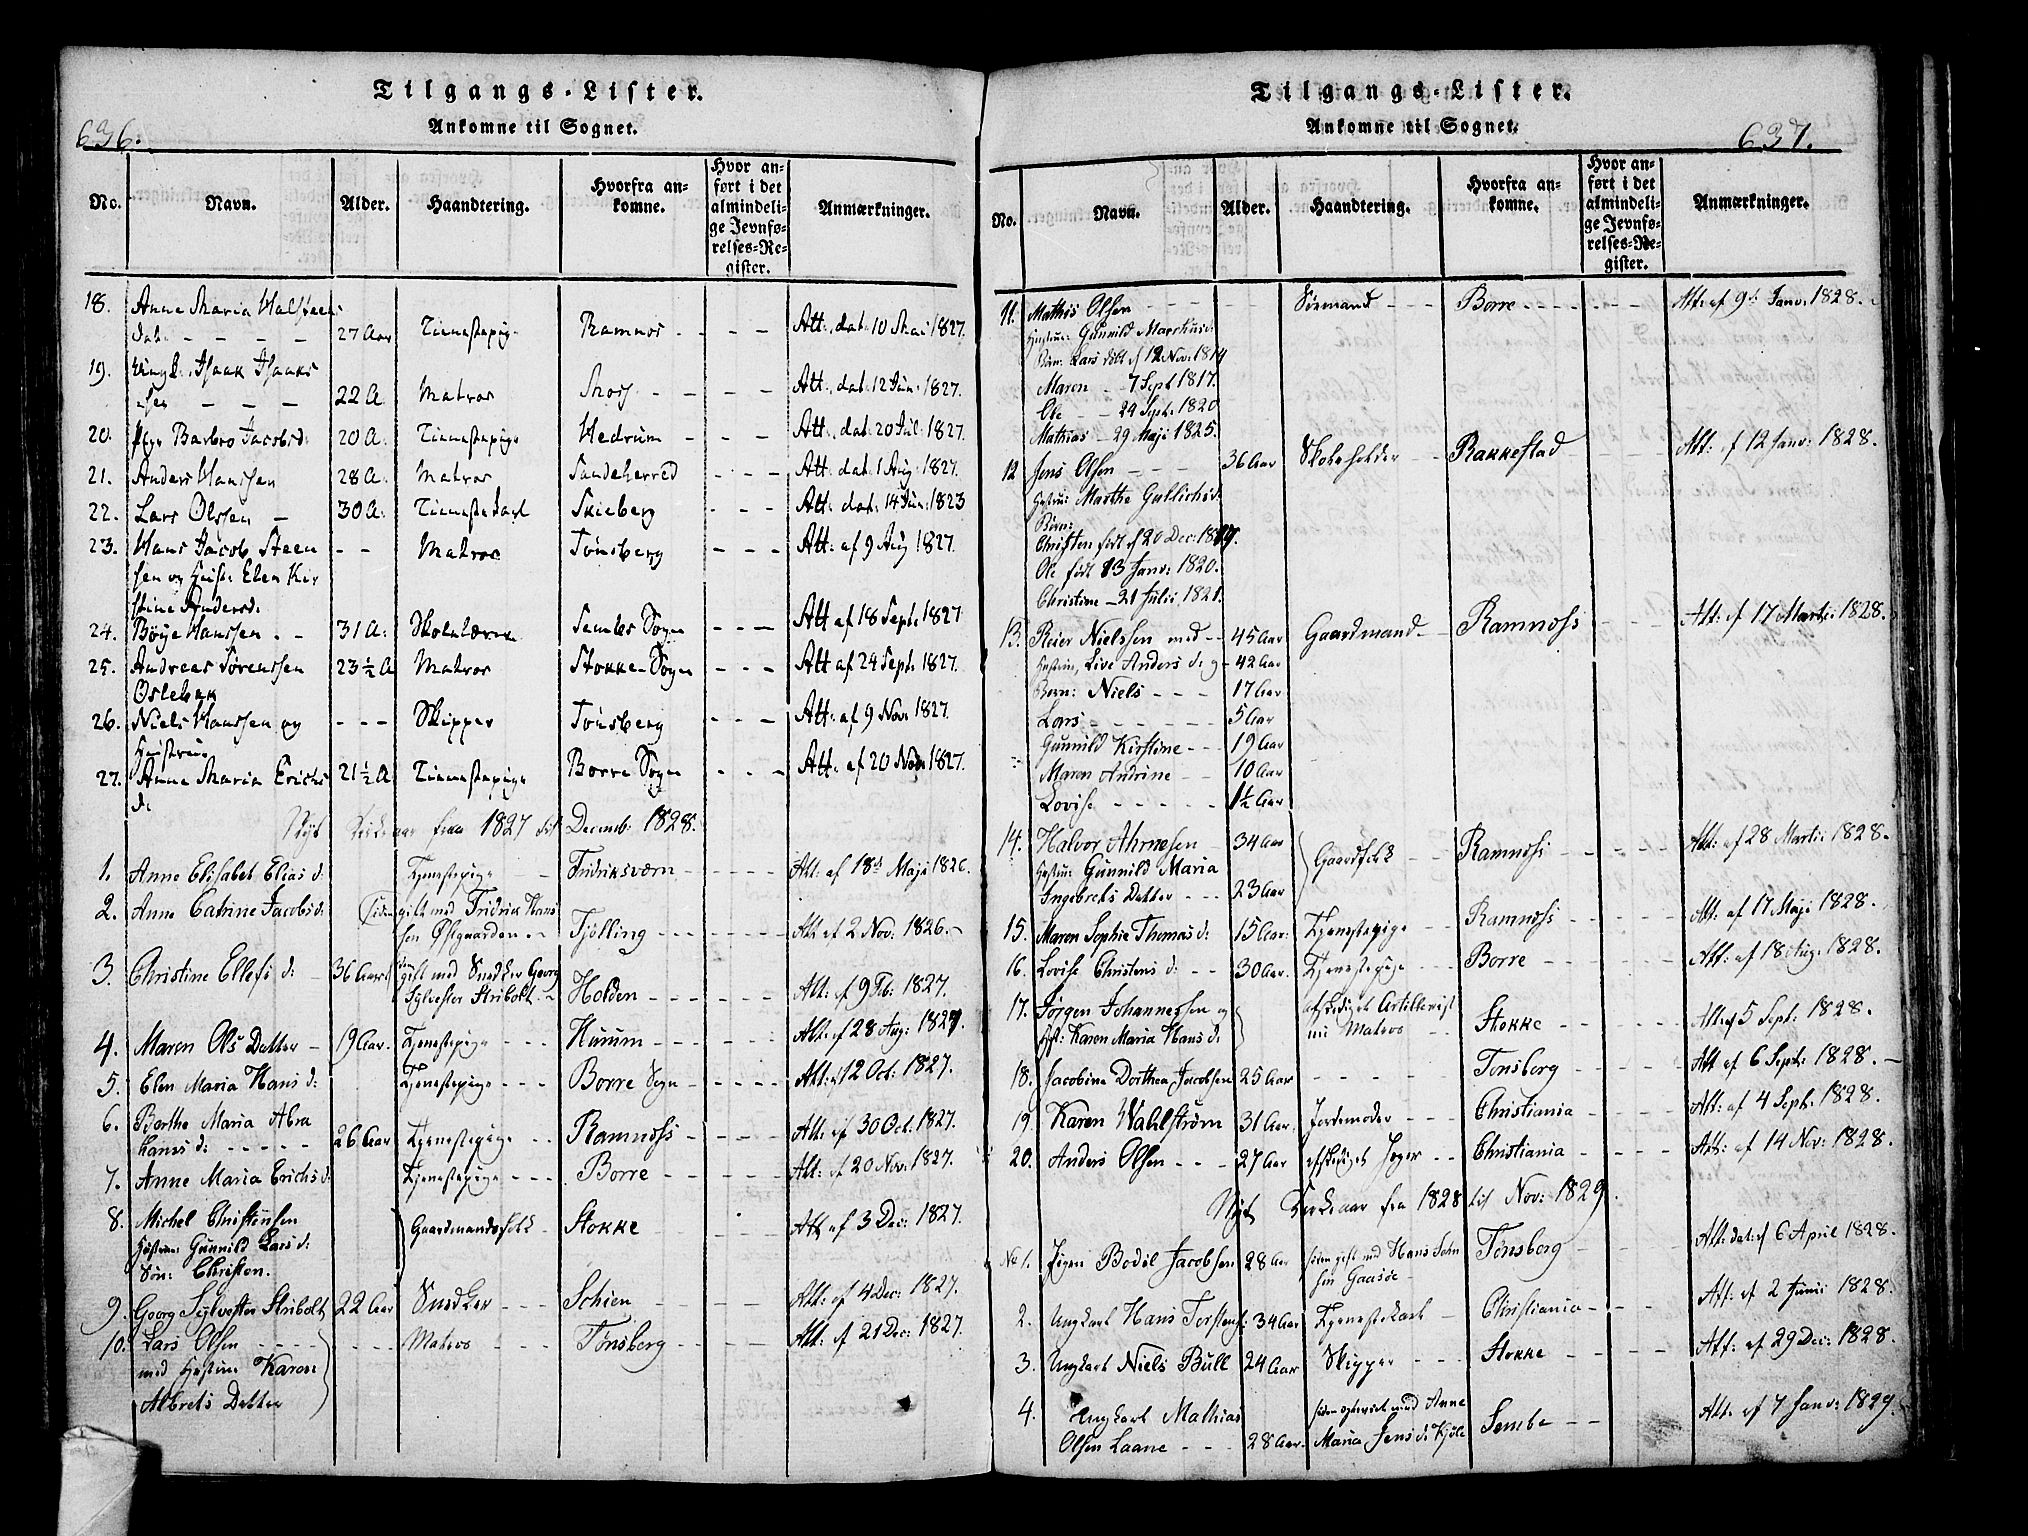 Tilgangs-Lister.
Ankomne til Sognet.
636.
No. Navn. Alder. Haandtering. Hvorfra ankomne. Hvor anført i det almindelige Jevnførelses-Register. Anmærkninger.
18. Anne Maria
27 Aar Tienestepige Ramnos - - - Att: dat: 10 Mai 1827.
19. Ungk. Isaak Isaak
sen - - - 22 A. Matros Att: dat: 12 Jun: 1827.
20. Pige Barbro Jacobsd: 20 A: Tienestepige Hedrum - - - Att: dat: 20 Jul: 1827.
21. Anders Hanssen 28 A: Matros Sandeherred - - - Att: dat: 1 Aug: 1827.
22. Lars Olssen - 30 A: Tienestekarl Skieberg - - - Att: dat: 14 Jun: 1823
23. Hans Jacob Steen - - Matros Tönsberg - - - Att: af 9 Aug 1827.
sen og Hustr: Elen Kir
stine Andersd:
24. Böye Hanssen - - 31 A: Skolelærer Sembs Sogn - - - Att af 18 Sept: 1827
25. Andreas Sørenssen 23 ½ A Matros Stokke Sogn - - - Att af 24 Sept: 1827.
Oslebak
26. Niels Hanssen og - - - Skipper Tönsberg - - - Att: af 9 Nov: 1827.
Hustrue
27. Anne Maria Erichs 21 ½ A Tienestepige Borre Sogn - - - Att: af 20 Nov: 1827.
d:
Nyt Kirkeaar fra 1827 til Decemb: 1828.
1. Anne Elisabet Elias d: Tjenestepige - Fridriksværn - - - Att: af 18d Maji 1826.
2. Anne Catrine Jacobsd: siden gift med Fridrik Hans
sen Østgaarden - Tjølling - - - Att af 2 Nov: 1826. -
3. Christine Ellefs d: - 36 Aar gift med Snedker Georg
Sylvester Stribolt - Holden - - - Att: af 9 Feb: 1827.
4. Maren Ols Datter - 19 Aar. Tjenestepige - - Hurum - - - Att: af 28 Aug: 1827.
5. Elen Maria Hans d: Tjenestepige - - - Borre Sogn - - - Att: af 12 Oct: 1827.
6. Berthe Maria Abra
hams d: - - - 26 Aar Tjenestepige - - Ramnoss - - - Att: af 30 Oct. 1827.
7. Anne Maria Erichs d: Tjenestepige - - - Borre - - - Att: af 20 Nov: 1827.
8. Michel Christensen Gaardmandsfolk - Stokke Att af 3 Dec: 1827.
Hustrue: Gunnild Lars d:
Søn: Christen.
9. Georg Sylvester Stribolt 22 Aar Snedker - - - Schien - - - Att: af 4 Dec: 1827.
10. Lars Olsen - - - Matros - - - Tønsberg - - - Att: af 21 Dec: 1827.
med Hustrue Karen
Albrets Datter
Tilgangs-Lister.
Ankomne til Sognet.
637.
No. Navn. Alder. Haandtering. Hvorfra ankomne. Hvor anført i det almindelige Jevnførelses-Register. Anmærkninger.
11. Mathis Olsen - - - Sømand - - - Borre - - - Att: af 9d Janv: 1828. -
Hustrue: Gunnild
Børn: Lars født d 12 Nov: 1814
Maren - - 7 Sept 1817.
Ole - - 24 Sept: 1820
Mathias - 29 Maji 1825.
12 Jens Olsen - - - 36 Aar Skoleholder - - Rakkestad - - - Att: af 12 Janv: 1828.
Hustrue: Marthe
Børn:
Christen født d 20 Dec: 1819.
Ole født 13 Janv: 1820.
Christine - 21 Julii 1821.
13. Reier Nielssen med - 45 Aar Gaardmand - Ramnoss - - - Att: af 17 Martii 1828.
Hustrue, Live Anders d: og - 42 Aar
Børn: Niels - - - 17 Aar
Lars - - - 5 Aar
Gunnild Kirstine - - 19 Aar
Maren Andrine - - 10 Aar
Lovise - - - 1½ Aar
14. Halvor Ahrnesen - 34 Aar Gaardfolk - - Ramnoss - - - Att: af 28 Martii 1828.
Hustru: Gunnild Maria
Ingebrets Datter - - 23 Aar
15. Maren Sophie Thomas d: 15 Aar: Tjenestepige - - Ramnoss - - - Att: af 17 Maji 1828.
16. Lovise Christens d: - - 30 Aar. Tjenestepige - - - Borre - - - Att: af 18 Aug. 1828.
17. Jørgen Johannessen og afskediget Artillerist
Hst: Karen Maria Hans d: nu Matros - - Stokke - - - Att: af 5 Sept: 1828.
18. Jacobine Dorthea Jacobsen 25 Aar - - - Tonsberg - - - Att af 6 Sept: 1828. -
19. Karen Wahlstrøm 31 Aar. Jordemoder - - - Christiania - - - Att: af 4 Sept: 1828.
20. Anders Olsen - - - 27 Aar afskediget Jeger - - Christiania - - - Att: af 14 Nov: 1828.
Nyt Kirkeaar fra 1828 til Nov: 1829.
No 1. Jgen Bodil Jacobsen 28 Aar siden gift med Hans
sen Gaasøe - Tønsberg - - Att: dat: d 6 April 1828.
2. Ungkarl Hans Torstens: 34 Aar Tjenestekarl - Christiania - - - Att: af 2 Junii 1828.
3. Ungkarl Niels Bull 24 Aar Skipper - - - Stokke - - - Att: af 29 Dec: 1828.
4. Ungkarl Mathias siden med Anne
Olsen Laane - - - 28 Aar. Maria Jens d: Kjøle Sembe - - Att: af 7 Janv: 1829.